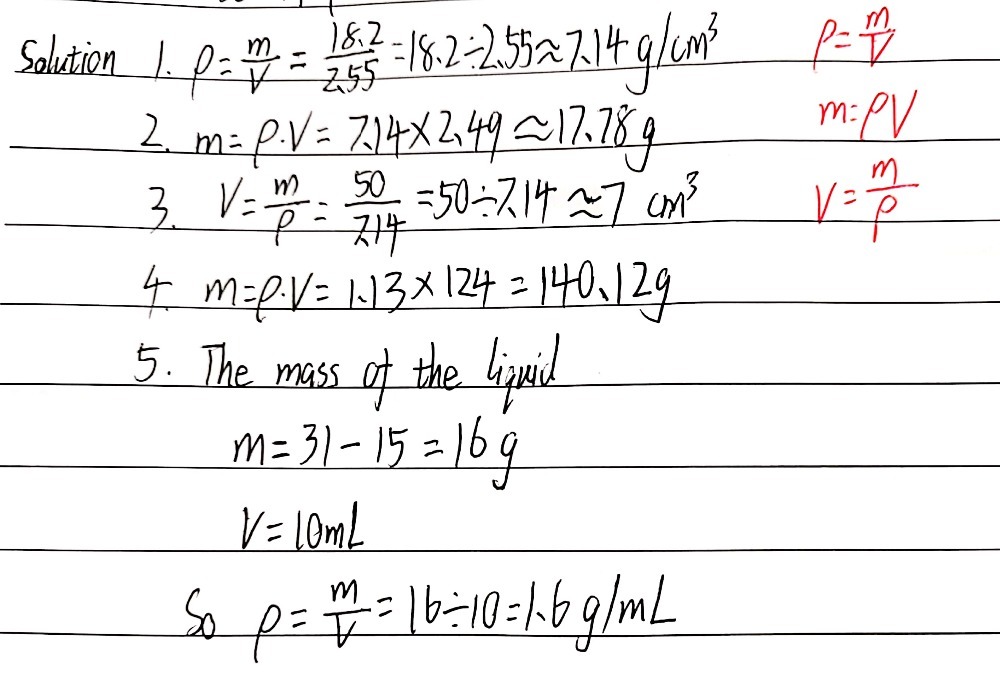 Solution 1. ρ = m/V = 18.2/2.55 = 18.2÷2.55≈7.14 g/cm³
ρ = m/V
2. m = ρ.V = 7.14×2.49 ≈17.78 g
m = ρV
3. V = m/ρ = 50/7.14 = 50÷7.14 ≈7 cm³
V = m/ρ
4 m=ρ.V = 1.13 × 124 = 140.12g
5. The mass of the liquid
m = 31 - 15 = 16 g
V = 10mL
So ρ = m/V = 16÷10 = 1.6 g/mL